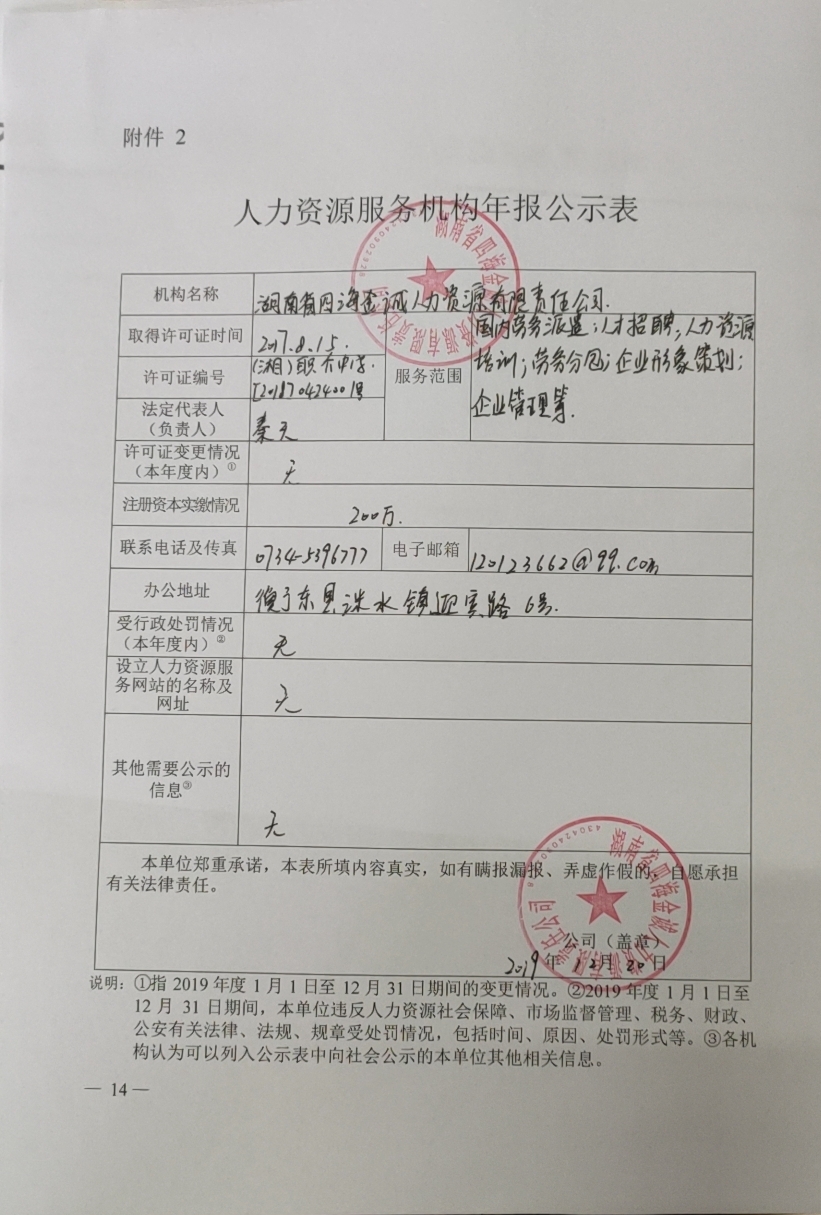 附件 2
人力资源服务机构年报公示表
机构名称 湖南省四海金诚人力资源有限责任公司.
取得许可证时间 2017.8.15.
许可证编号 (湘)职介中字. [2018]0424001号
法定代表人（负责人） 秦天
服务范围 国内劳务派遣;人才招聘;人力资源
培训;劳务分包;企业形象策划;
企业管理等.
许可证变更情况
（本年度内）① 无
注册资本实缴情况 200万.
联系电话及传真 0734-5396777 电子邮箱 120123662@qq.com
办公地址 衡东县洣水镇迎宾路 6号.
受行政处罚情况
（本年度内）② 无
设立人力资源服
务网站的名称及
网址 无
其他需要公示的
信息③ 无
本单位郑重承诺，本表所填内容真实，如有瞒报漏报、弄虚作假的，自愿承担
有关法律责任。
公司（盖章）
2019年 12月 20日
说明：①指 2019 年度 1 月 1 日至 12 月 31 日期间的变更情况。②2019 年度 1 月 1 日至
12 月 31 日期间，本单位违反人力资源社会保障、市场监督管理、税务、财政、
公安有关法律、法规、规章受处罚情况，包括时间、原因、处罚形式等。③各机
构认为可以列入公示表中向社会公示的本单位其他相关信息。
— 14 —
湖南省四海金诚人力资源有限责任公司
湖南省四海金诚人力资源有限责任公司